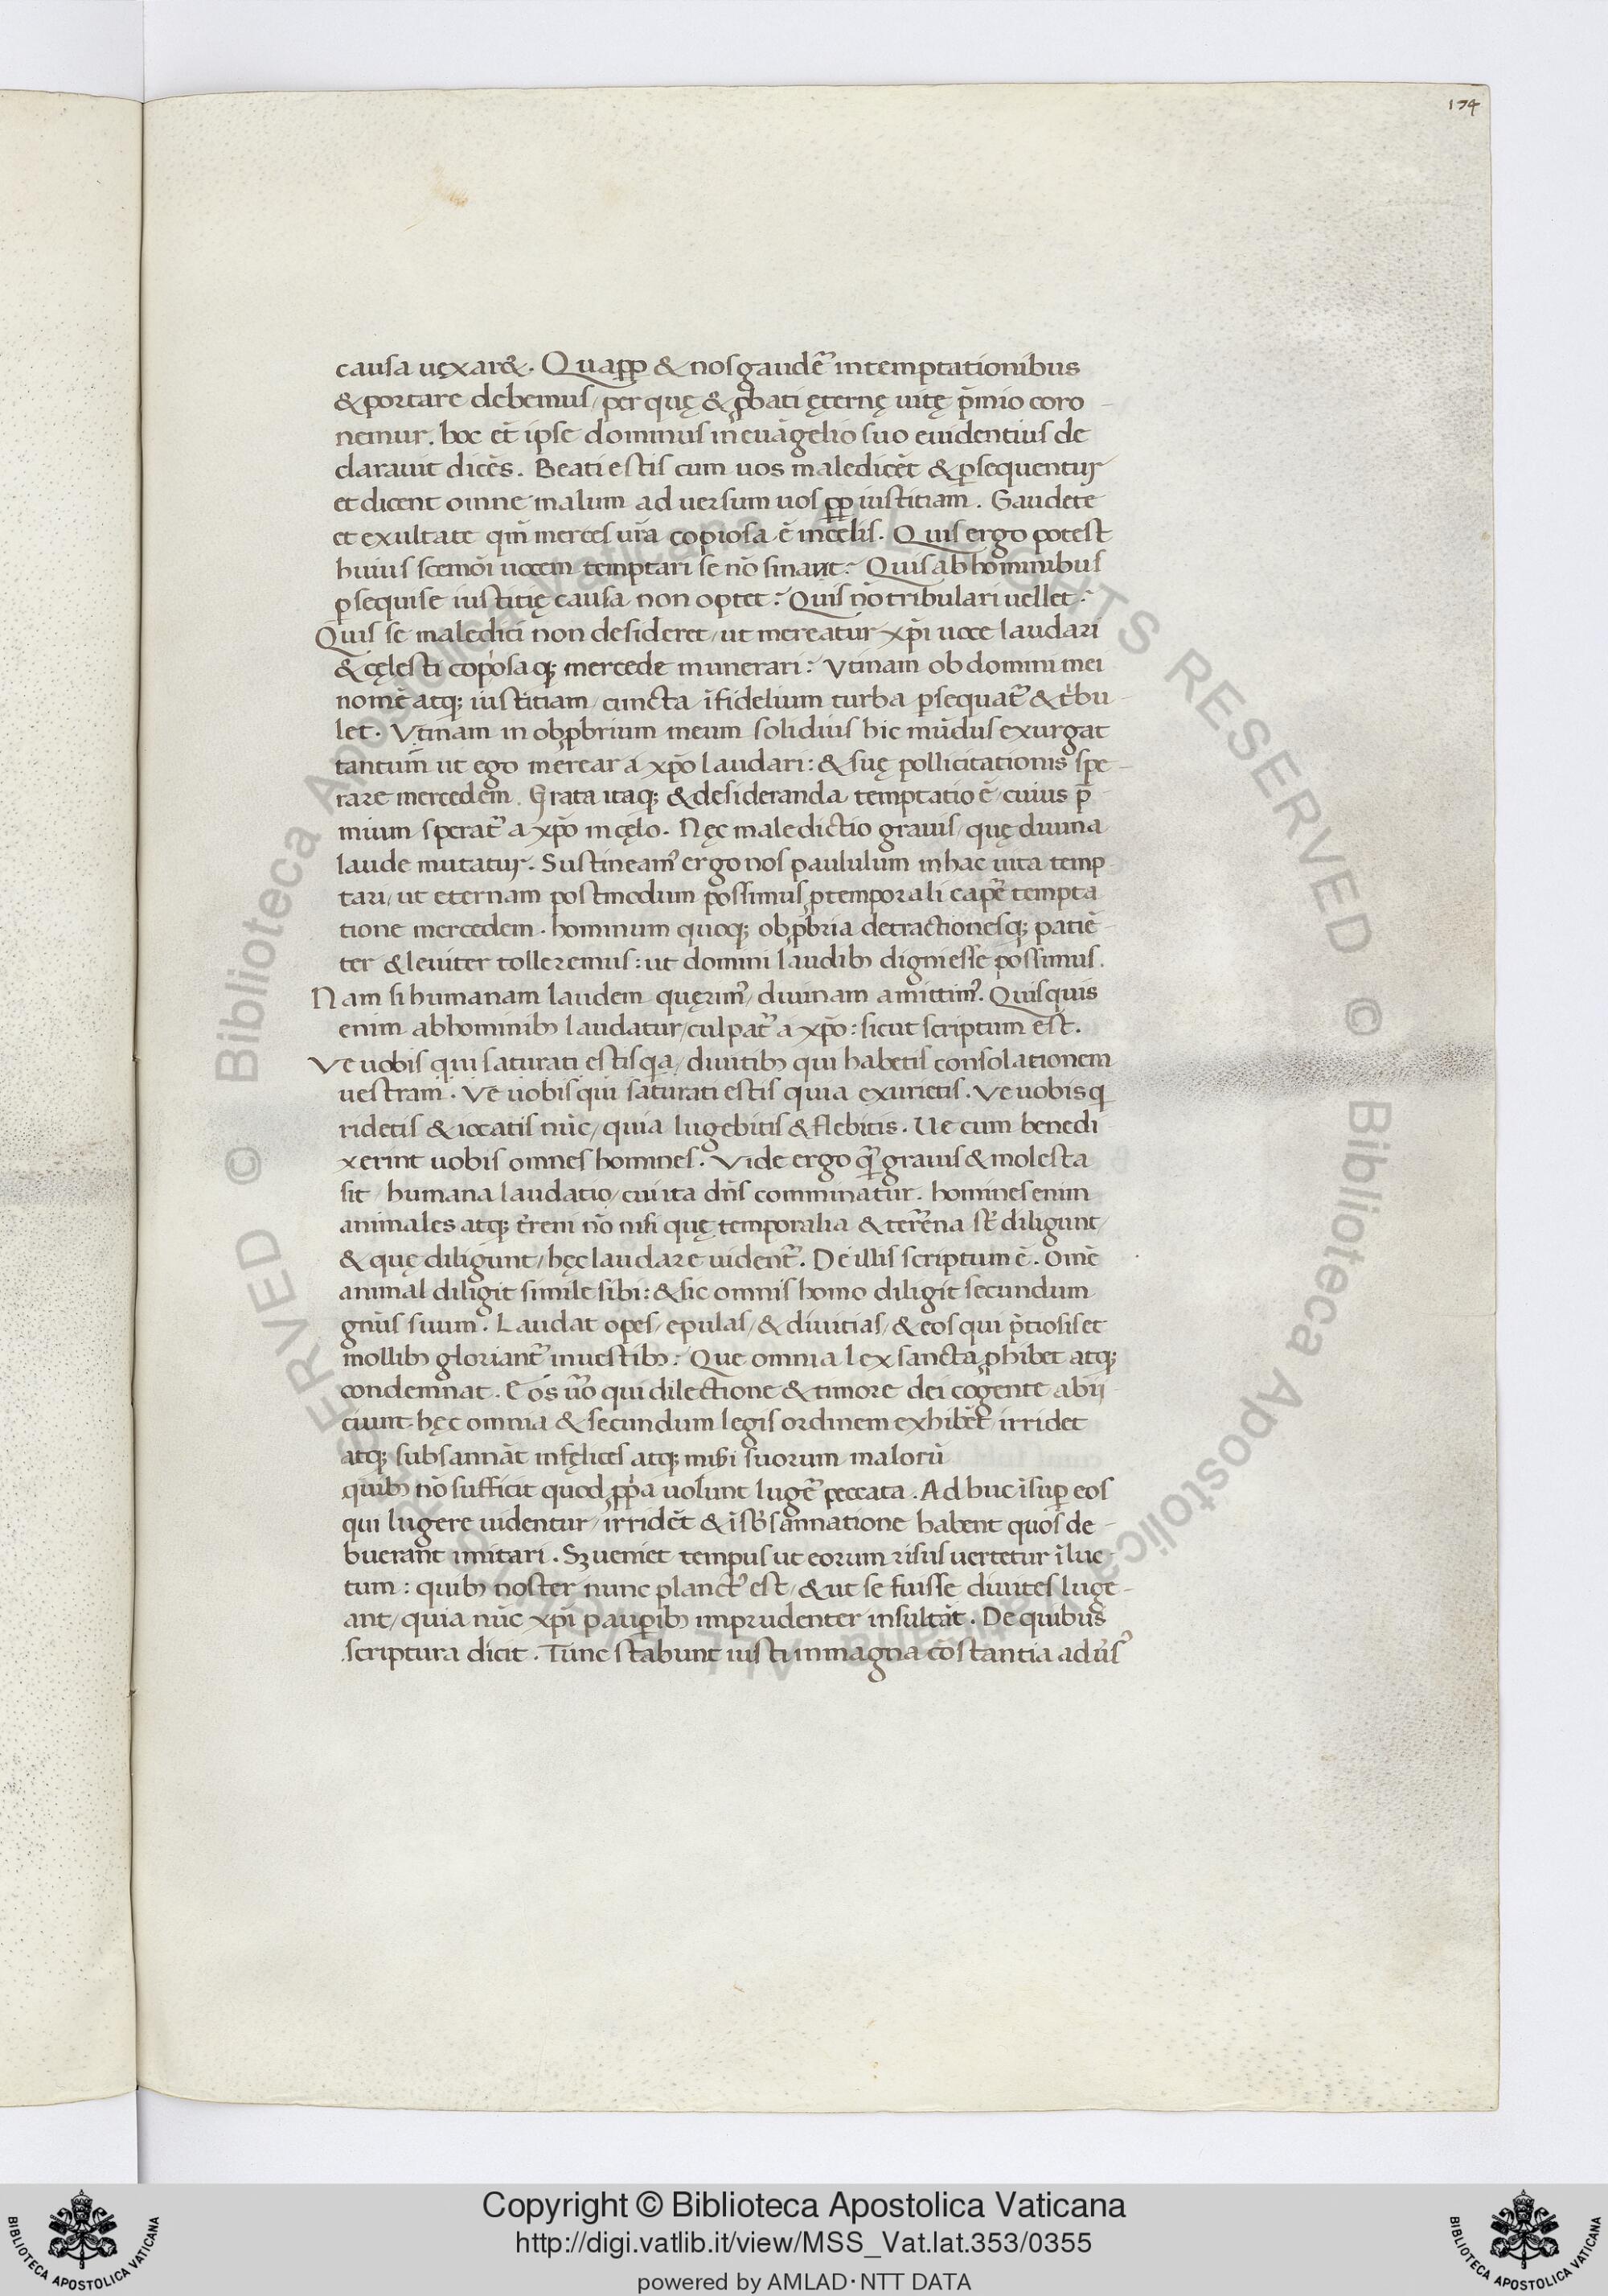 174
causa uęxar&. Quapp̱ & nos gaudē intemptationibus
& portare debemus, per quę & ꝓbati ęternę uitę p̄mio coro
nemur. hoc et̄ ipse dominus in euāgelio suo euidentius de
clarauit dicēs. Beati estis cum uos maledicēt & ꝑsequentur
et dicent omne malum ad uersum uos ꝓp iustitiam. Gaudete
et exultate qm̄ merces ur̄a copiosa ē incelis. Quis ergo potest
huius scemōi uocem temptari se nō sinant? Quis ab hominibus
ꝑsequise iustitię causa non optet? Quis nō tribulari uellet?
Quis se maledici non desideret, ut mereatur xp̄i uoce laudari
& cęlesti copiosa qꝫ mercede munerari: Vtinam ob domini mei
nomē atqꝫ iustitiam cuncta īfidelium turba ꝑsequat᷑ & t'bu
let. Vtinam in obꝓbrium meum solidius hic mūdus exurgat
tantum ut ego merear a xp̄o laudari: & suę pollicitationis spe
rare mercedem. Grata itaqꝫ & desideranda temptatio ē cuius p̄
mium sperat᷑ a xp̄o in cęlo. Nęc maledictio grauis, quę diuina
laude mutatur. Sustineam᷒ ergo nos paululum in hac uita temp
tari, ut eternam postmodum possimus ꝓ temporali capē tempta
tione mercedem. hominum quoqꝫ obꝓbria detractionesqꝫ patiē
ter & leuiter tolleremus: ut domini laudibꝫ digni esse possimus.
Nam si humanam laudem quęrim᷒, diuinam amittim᷒. Quisquis
enim abhominibꝫ laudatur, culpat᷑ a xp̄o: sicut scriptum est.
Ve uobis qui saturati estis qa, diuitibꝫ qui habetis consolationem
uestram. Ve uobis qui saturati estis quia exurietis. Ve uobis q
ridetis & iocatis nūc, quia lugebitis & flebitis. Ue cum benedi
xerint uobis omnes homines. Vide ergo qm̄ grauis & molesta
sit humana laudatio, cui ita dn̄s comminatur. homines enim
animales atqꝫ t'reni nō nisi quę temporalia & terrena st̄ diligunt
& quę diligunt, hęc laudare uident᷑. De illis scriptum ē. Omē
animal diligit simile sibi: & sic omnis homo diligit secundum
gn̄us suum. Laudat opes, epulas, & diuitias, & eos qui p̄tiosis et
mollibꝫ gloriant᷑ inuestibꝫ: Que omnia lex sancta ꝓhibet atqꝫ
condemnat. Eos ūo qui dilectione & timore dei cogente abij
ciunt hęc omnia & secundum legis ordinem exhibēt᷑ irridet
atqꝫ subsannāt infęlices atqꝫ misi suorum malorū
quibꝫ nō sufficit quod ꝓp'a uolunt lugē peccata. Ad huc īsuꝑ eos
qui lugere uidentur, irridēt & ī sb'sannatione habent quos de
buerant imitari. Sꝫ ueniet tempus ut eorum risus uertetur ī luc
tum: quibꝫ noster nunc planct᷒ est, & ut se fuisse diuites luge
ant, quia nūc xp̄i pauꝑibꝫ imprudenter insultāt. De quibus
scriptura dicit. Tunc stabunt iusti in magna costantia adūs᷒
© Biblioteca Apostolica Vaticana ALL RIGHTS RESERVED
© Biblioteca Apostolica Vaticana ALL RIGHTS RESERVED
BIBLIOTECA APOSTOLICA VATICANA
Copyright © Biblioteca Apostolica Vaticana
http://digi.vatlib.it/view/MSS_Vat.lat.353/0355
powered by AMLAD·NTT DATA
BIBLIOTECA APOSTOLICA VATICANA